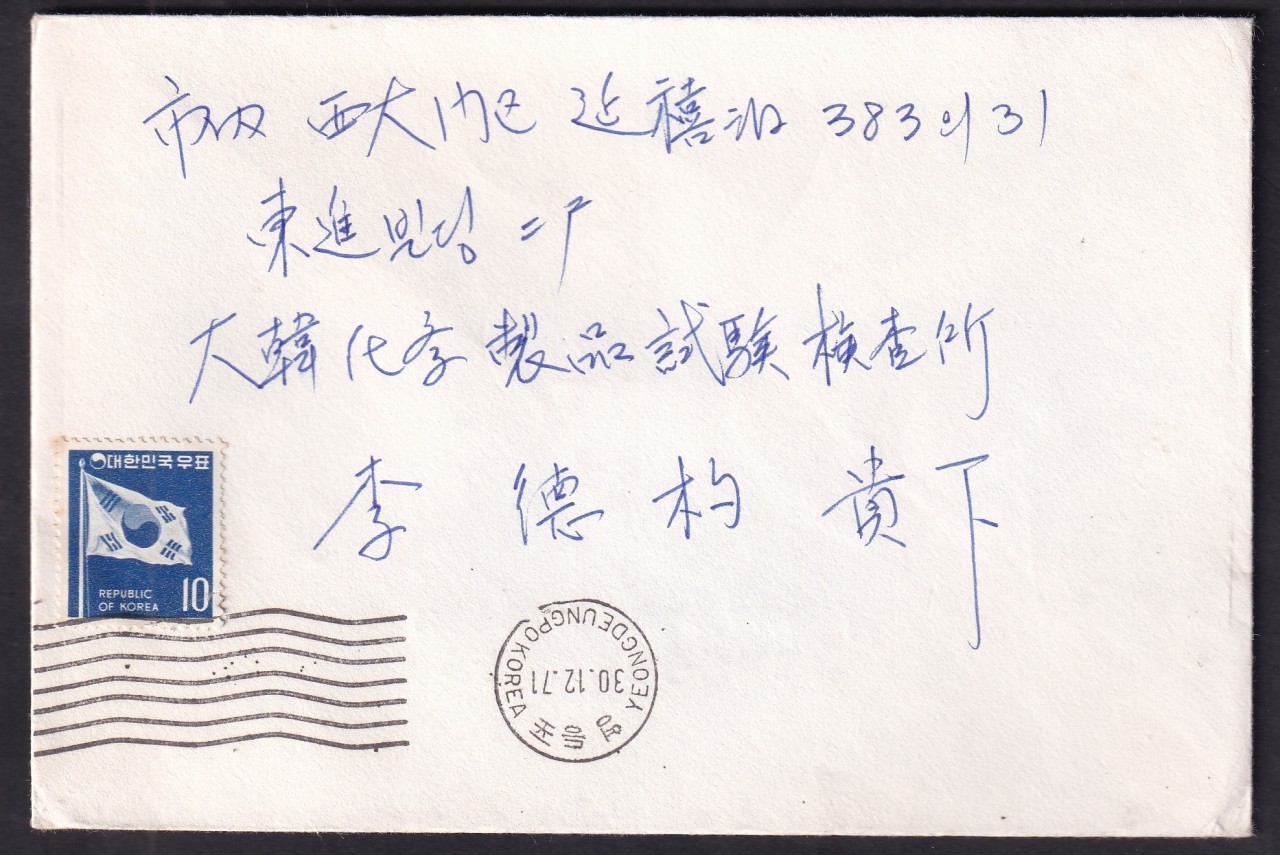 市内 西大门区 延禧洞 383의31
東進빌딩 二F
大韓化学製品試験検査所
李 德 杓 貴下
대한민국우표
REPUBLIC
OF KOREA 10
YEONGDEUNGPO KOREA
30.12.71
영등포